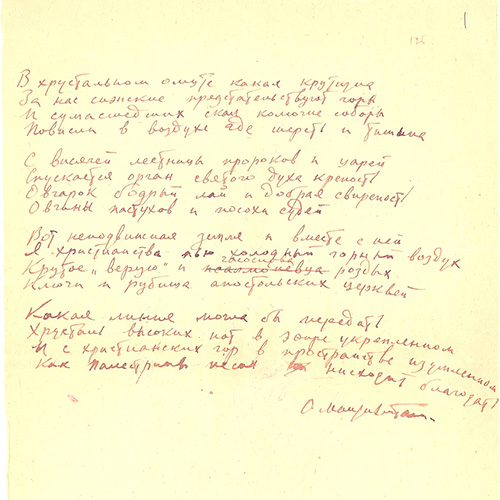 1
126
В хрустальном омуте какая крутизна
За нас сиенские предстательствуют горы
И сумасшедших скал колючие соборы
Повисли в воздухе где шерсть и тишина
С висячей лестницы пророков и царей
Спускается орган святого духа крепость
Овчарок бодрый лай и добрая свирепость
Овчины пастухов и посохи судей
Вот неподвижная земля и вместе с ней
Я христианства пью холодный горный воздух
Крутое „верую“ и псалмопевца роздых
Ключи и рубища апостольских церквей
Какая линия могла бы передать
Хрусталь высоких нот в эфире укрепленном
И с христианских гор в пространстве изумленном
Как Палестрины песня нисходит благодать
О Мандельштам.